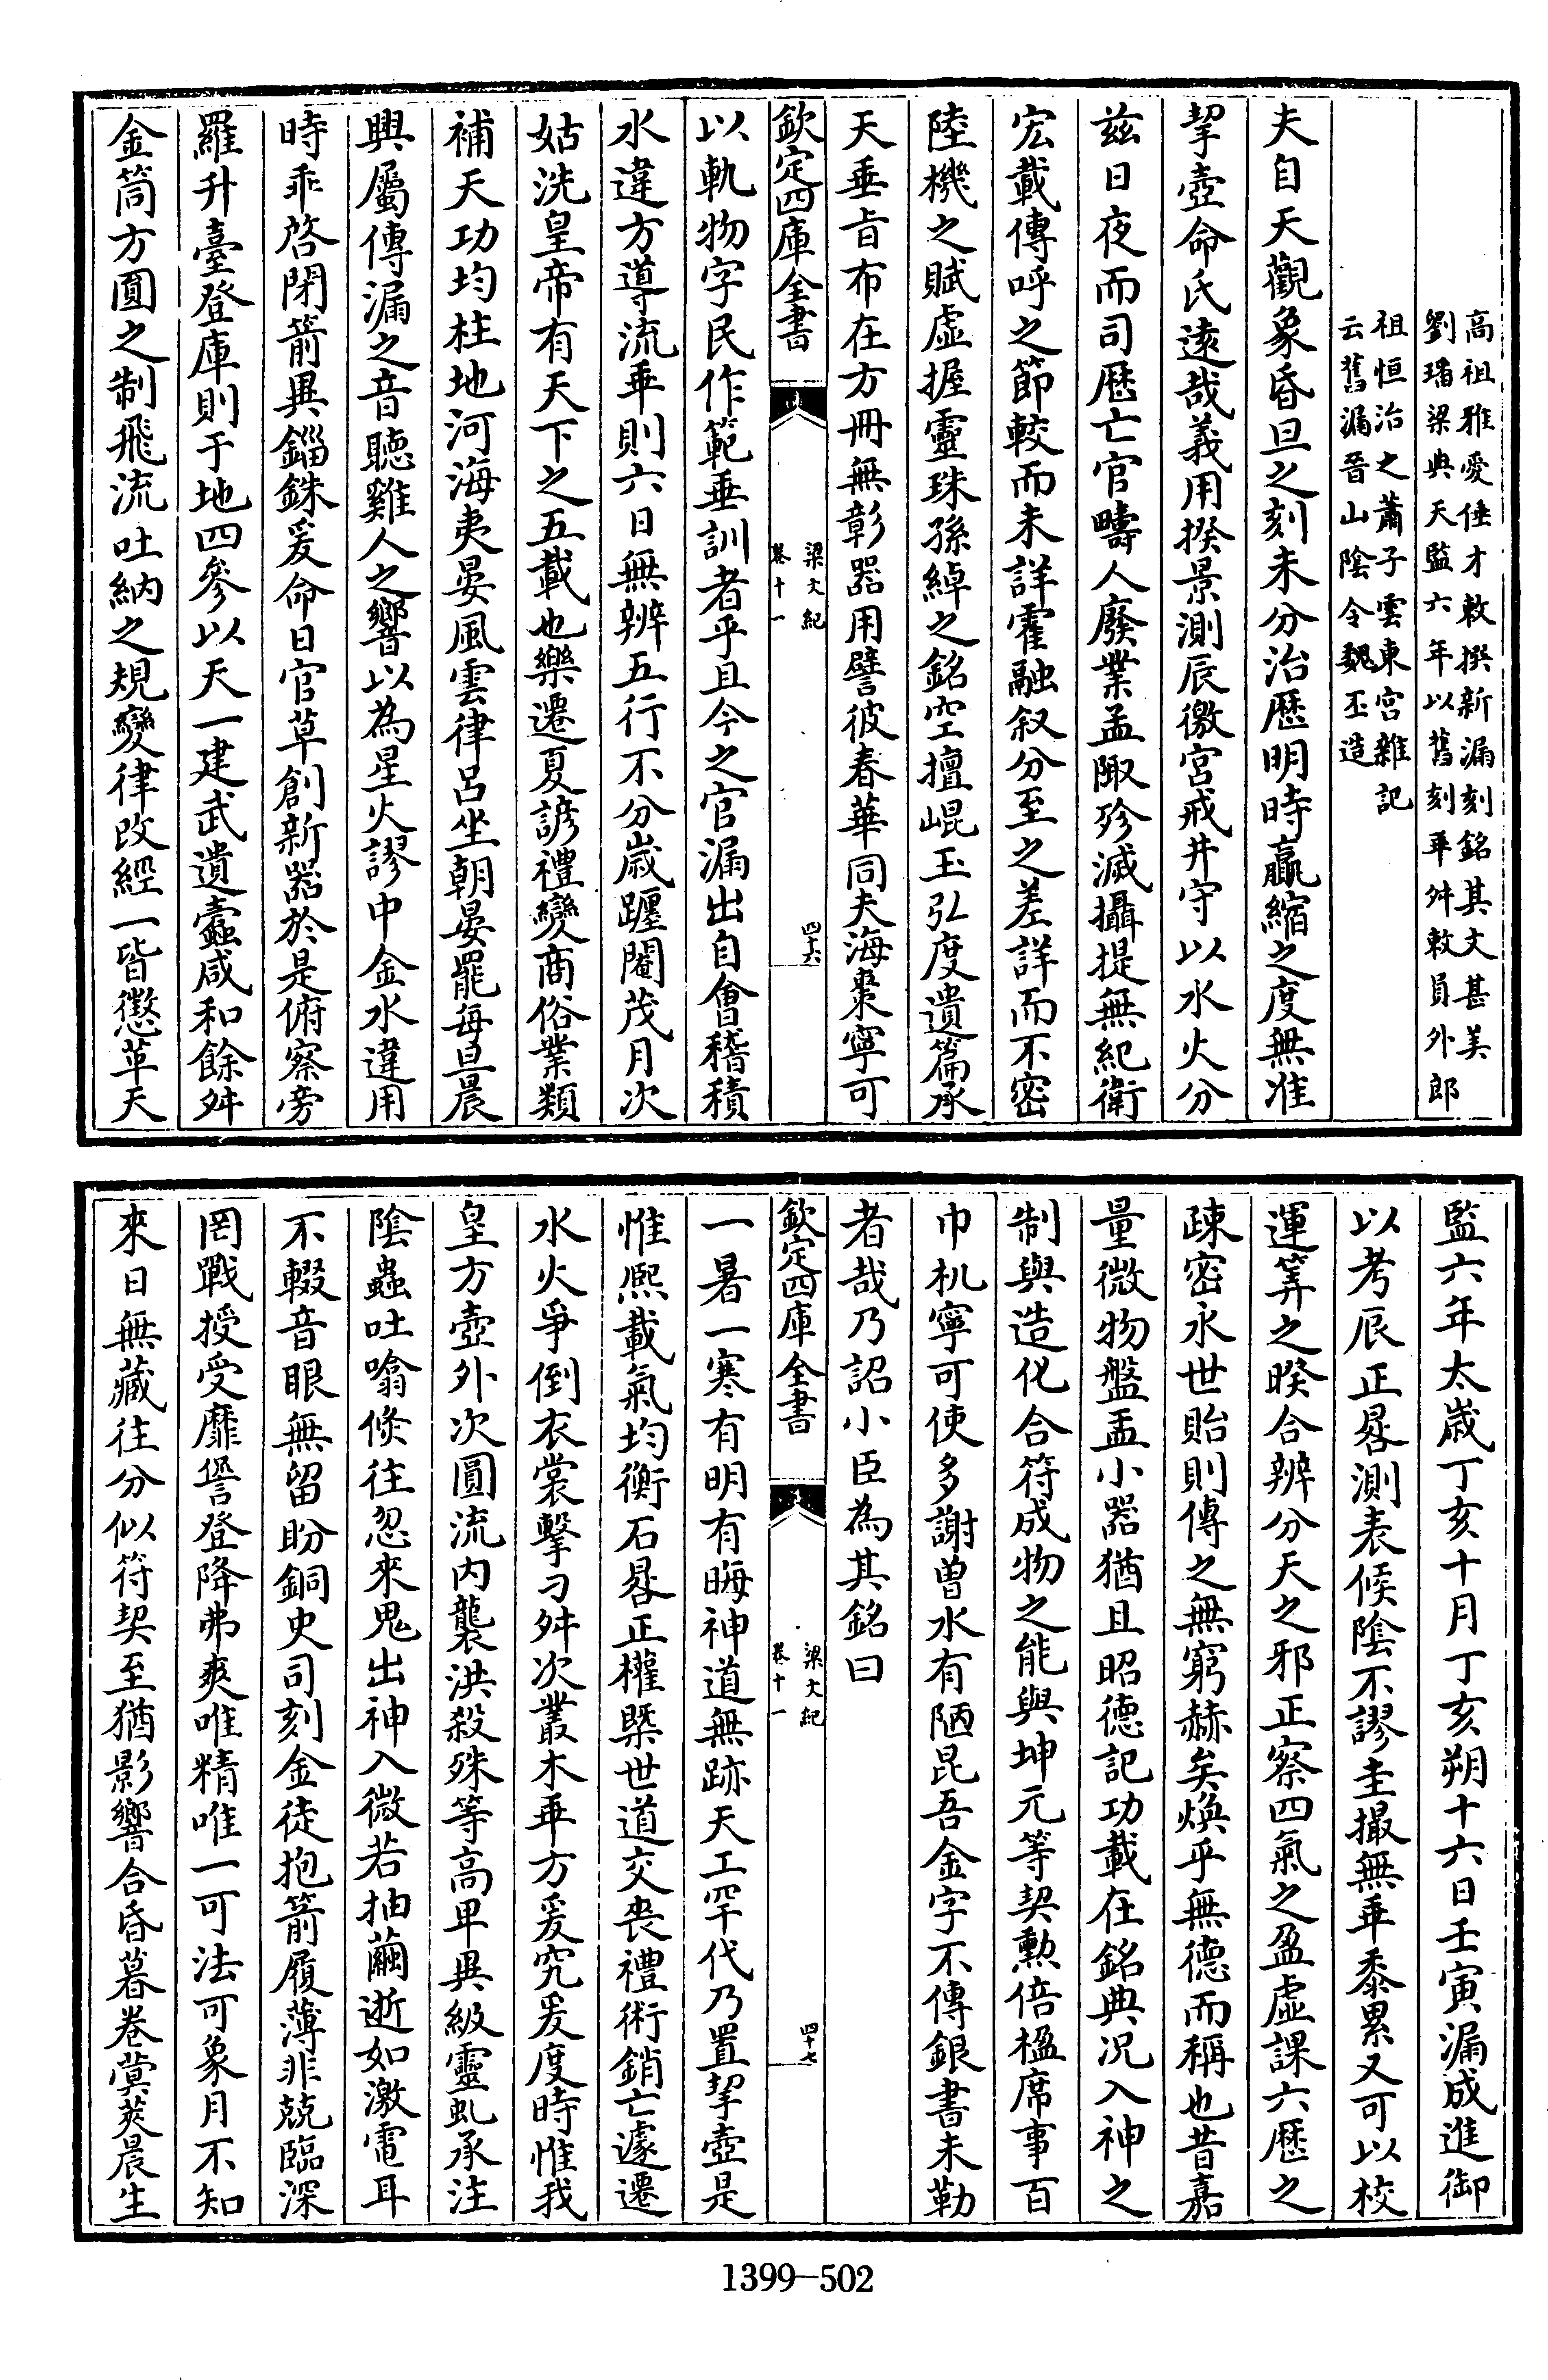 高祖雅愛倕才敕撰新漏刻銘其文甚美
劉璠梁典天監六年以舊刻乖舛敕員外郎
祖恒治之蕭子雲東宫雜記
云舊漏晉山陰令魏丕造
夫自天觀象昏旦之刻未分治歴明時贏縮之度無准
挈壺命氏逺哉義用揆景測辰徼宫戒井守以水火分
兹日夜而司歴亡官疇人廢業孟陬殄滅攝提無紀衛
宏載傳呼之節較而未詳霍融叙分至之差詳而不密
陸機之賦虚握靈珠孫綽之銘空擅崐玉弘度遺篇承
天垂旨布在方冊無彰器用譬彼春華同夫海棗寧可
欽定四庫全書
梁文紀
卷十一
四十六
以軌物字民作範垂訓者乎且今之官漏出自會稽積
水違方導流乖則六日無辨五行不分嵗躔閹茂月次
姑洗皇帝有天下之五載也樂遷夏諺禮變商俗業類
補天功均柱地河海夷晏風雲律呂坐朝晏罷每旦晨
興屬傳漏之音聽雞人之響以為星火謬中金水違用
時乖啓閉箭異錙銖爰命日官草創新器於是俯察旁
羅升臺登庫則于地四參以天一建武遺蠹咸和餘舛
金筒方圓之制飛流吐納之規變律改經一皆懲革天
監六年太嵗丁亥十月丁亥朔十六日壬寅漏成進御
以考辰正晷測表候陰不謬圭撮無乖黍累又可以校
運筭之睽合辨分天之邪正察四氣之盈虚課六歴之
疎密永世貽則傳之無窮赫矣煥乎無德而稱也昔嘉
量微物盤盂小器猶且昭德記功載在銘典况入神之
制與造化合符成物之能與坤元等契勲倍楹席事百
巾机寧可使多謝曽水有陋昆吾金字不傳銀書未勒
者哉乃詔小臣為其銘曰
欽定四庫全書
梁文紀
卷十一
四十七
一暑一寒有明有晦神道無跡天工罕代乃置挈壺是
惟熙載氣均衡石晷正權槩世道交喪禮術銷亡遽遷
水火爭倒衣裳擊刁舛次叢木乖方爰究爰度時惟我
皇方壺外次圓流内襲洪殺殊等髙卑異級靈虬承注
陰蟲吐噏倏往忽來鬼出神入微若抽繭逝如激電耳
不輟音眼無留盼銅史司刻金徒抱箭履薄非兢臨深
罔戰授受靡諐登降弗爽唯精唯一可法可象月不知
來日無藏往分似符契至猶影響合昏暮卷蓂莢晨生
1399-502